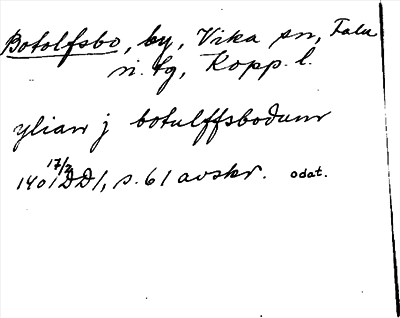 Botolfsbo, by, Vika sn, Falu
n. tg, Kopp. l.
ylian j botulffsbodum
1401 17/2 DD1, s. 61 avskr. odat.